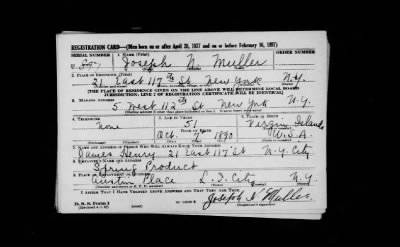 REGISTRATION CARD—(Men born on or after April 28, 1877 and on or before February 16, 1897)
SERIAL NUMBER 1. NAME (Print) ORDER NUMBER
U Joseph N. Muller
2. PLACE OF RESIDENCE (Print)
21 East 117th St. New York N.Y.
[THE PLACE OF RESIDENCE GIVEN ON THE LINE ABOVE WILL DETERMINE LOCAL BOARD
JURISDICTION; LINE 2 OF REGISTRATION CERTIFICATE WILL BE IDENTICAL]
3. MAILING ADDRESS
5 West 112th St New York N.Y.
4. TELEPHONE 5. AGE IN YEARS 6. PLACE OF BIRTH
none 51 Virgin Islands
DATE OF BIRTH
Oct. 7 1890 U.S.A.
7. NAME AND ADDRESS OF PERSON WHO WILL ALWAYS KNOW YOUR ADDRESS
James Henry 21 East 117 St N.Y. City
8. EMPLOYER'S NAME AND ADDRESS
Spring Product
9. PLACE OF EMPLOYMENT OR BUSINESS
Austin Place L.I. City N.Y.
I AFFIRM THAT I HAVE VERIFIED ABOVE ANSWERS AND THAT THEY ARE TRUE.
D. S. S. Form 1
Joseph N Muller